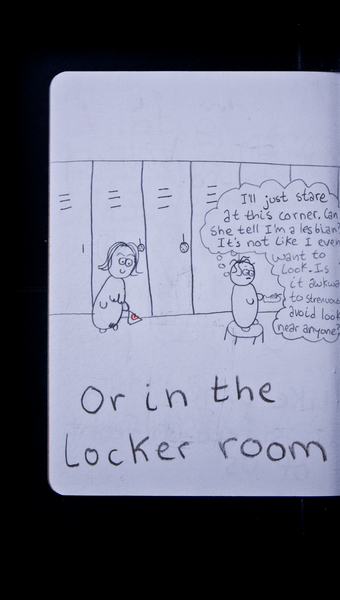 I'll just stare
at this corner. Can
she tell I'm a lesbian?
It's not like I even
want to
look. Is
it
to
avoid look
near anyone?
Or in the
Locker room